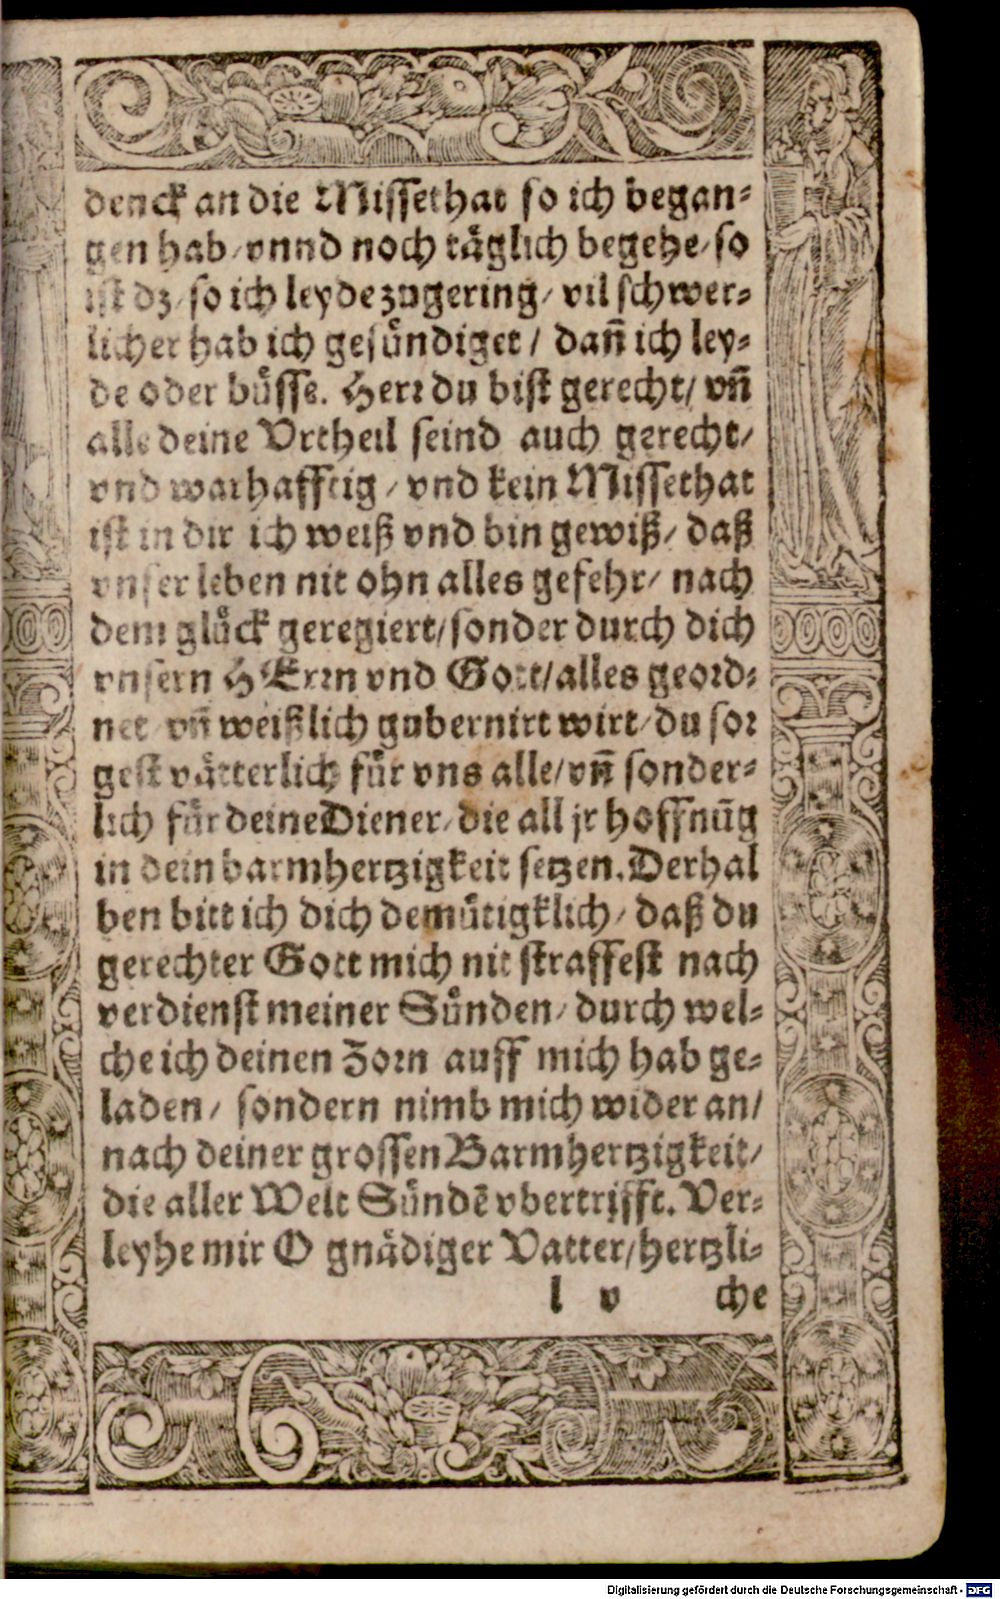 denck an die Missethat so ich began⸗
gen hab/ vnnd noch täglich begehe/ so
ist dz/ so ich leyde zugering/ vil schwer⸗
licher hab ich gesündiget / dañ ich ley⸗
de oder büsse. Herr du bist gerecht/ vñ
alle deine Vrtheil seind auch gerecht/
vnd warhafftig / vnd kein Missethat
ist in dir ich weiß vnd bin gewiß/ daß
vnser leben nit ohn alles gefehr/ nach
dem glück geregiert/ sonder durch dich
vnsern HErrn vnd Gott/ alles geord⸗
net vñ weißlich gubernirt wirt/ du sor
gest vätterlich für vns alle/ vñ sonder⸗
lich für deine Diener/ die all jr hoffnūg
in dein barmhertzigkeit setzen. Derhal
ben bitt ich dich demütigklich/ daß du
gerechter Gott mich nit straffest nach
verdienst meiner Sünden/ durch wel⸗
che ich deinen Zorn auff mich hab ge⸗
laden/ sondern nimb mich wider an/
nach deiner grossen Barmhertzigkeit/
die aller Welt Sündē vbertrifft. Ver⸗
leyhe mir O gnädiger Vatter/ hertzli⸗
l v che
Digitalisierung gefördert durch die Deutsche Forschungsgemeinschaft - DFG